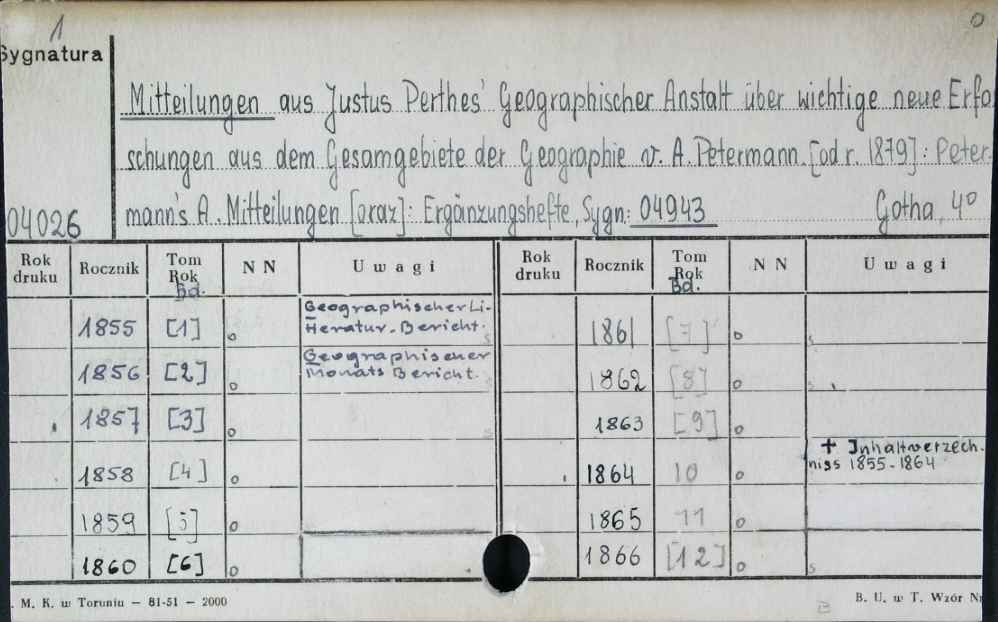 1 0
Sygnatura
Mitteilungen aus Justus Perthes' Geographischer Anstalt über wichtige neue Erfo
schungen aus dem Gesamgebiete der Geographie v. A. Petermann. [od r. 1879]: Peter-
04026 mann's A. Mitteilungen [oraz]: Ergänzungshefte, Sygn: 04943 Gotha, 4°
Rok druku Rocznik Tom Rok Bd. NN Uwagi Rok druku Rocznik Tom Rok Bd. NN Uwagi
1855 [1] o Geographischer Li- 1861 [7] o s
tteratur-Bericht. s
1856 [2] o Geographischer 1862 [8] o s
Monats Bericht. s
1857 [3] o s 1863 [9] o
1858 [4] o 1864 10 o + Inhaltverzech-
niss 1855-1864
1859 [5] o 1865 11 o
1860 [6] o 1866 [12] o s
. M. K. w Toruniu — 81-51 — 2000 B B. U. w T. Wzór Nr